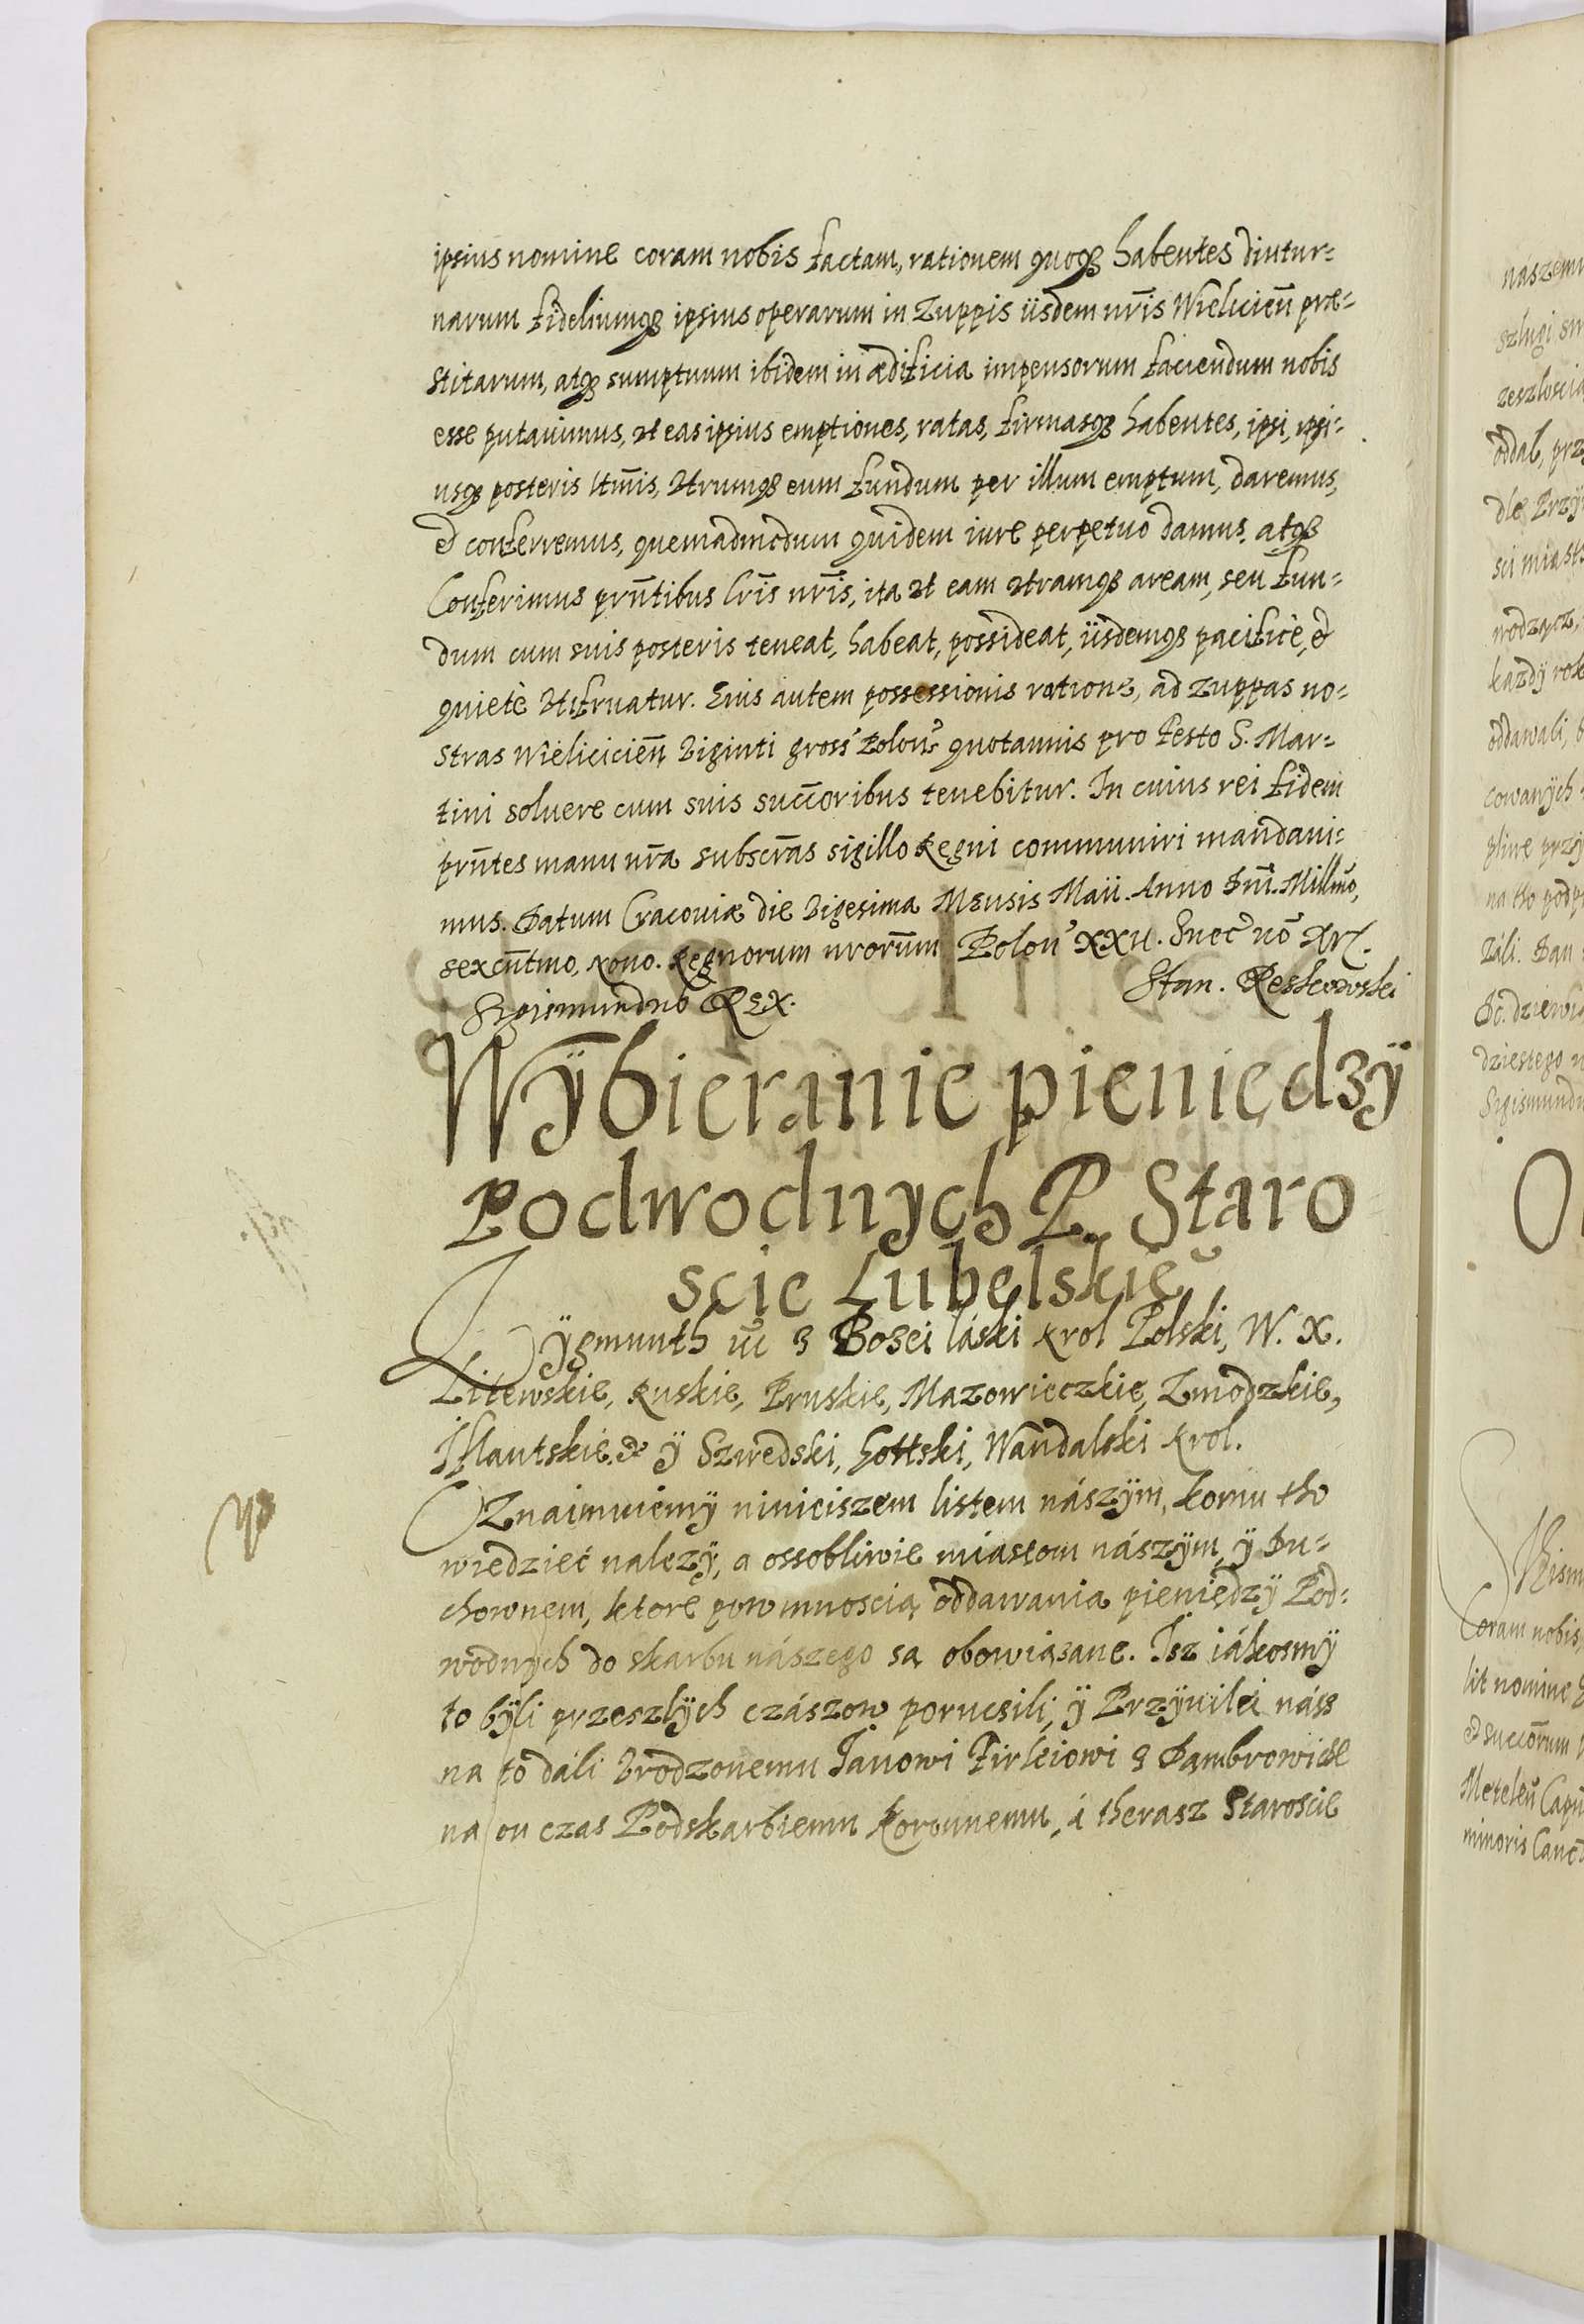 ipsius nomine coram nobis factam, rationem quoqȝ habentes diutur=
narum fideliumqȝ ipsius operarum in Zuppis iisdem nr̄is Wielicien̄ præ=
stitarum, atqȝ sumptuum ibidem in ædificia impensorum faciendum nobis
esse putauimus, vt eas ipsius emptiones, ratas, firmasqȝ habentes, ipsi, ipsi=
usqȝ posteris ltm̄is, vtrumqȝ eum fundum per illum emptum, daremus,
et conferremus, quemadmodum quidem iure perpetuo damus, atqȝ
Conferimus prn̄tibus lr̄is nr̄is, ita vt eam vtramqȝ aream, seu fun=
dum cum suis posteris teneat, habeat, possideat, iisdemqȝ pacificè, et
quietè vtifruatur. Eius autem possessionis ratione, ad zuppas no=
stras Wielicicien̄ viginti gross' Polon' quotannis pro Festo S. Mar=
tini soluere cum suis succ̄oribus tenebitur. In cuius rei fidem
prn̄tes manu nr̄a subscr̄as sigillo Regni communiri mandaui=
mus. Datum Cracouiæ die vigesima Mensis Maii. Anno Dn̄i. Millmō,
sexcn̄tmo, nono. Regnorum nrorūm Polon' XXII. Suec' uō XVI.
Sigismundus Rex. Stan. Reskowski
Wÿbieranie pieniędzÿ
Podwodnych P. Staro
scie Lubelskieᵘ
Zÿgmunth III z Bozei láski Krol Polski, W. X.
Litewskie, Ruskie, Pruskie, Mazowieczkie, Zmodzkie,
Iflantskie. etc ÿ Szwedski, Gottski, Wandalski Krol.
Oznaimuiemÿ niniciszem listem nászÿm, komu tho
wiedzieć nalezÿ, a ossobliwie miastom nászÿm, ÿ Du=
chownem, ktore powinnoscią oddawania pieniędzÿ Pod=
wodnych do skarbu nászego są obowiązane. Isz iákosmÿ
to bÿli przeszłÿch czászow poruczili, ÿ Przÿuilei nász
na to dáli Vrodzonemu Janowi Firleiowi z Dąmbrowice
na on czas Podskarbiemu Koronnemu, á therasz Staroscie
naszemu
szlugi
zeszłoscią
oddał, prz
dle Przÿ
sci miast
wodzącz,
kazdÿ rok
oddawali,
cowanÿch
pline przÿ
na tho podp
záli. Dan
dziestego
Sigismund
Coram nobis
lit nomine
et succōrum
minoris Canc